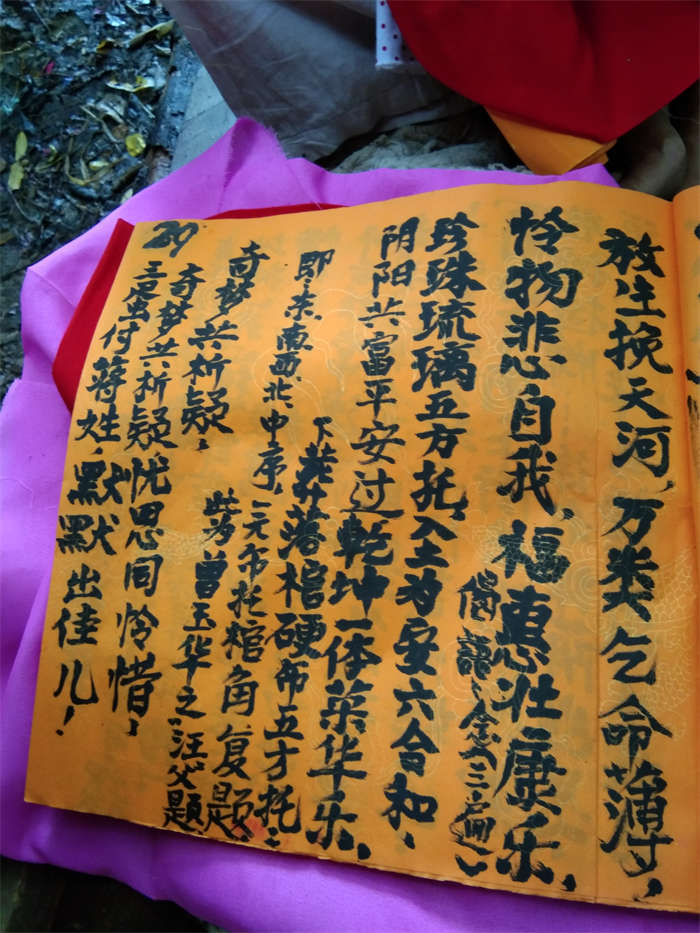 放生挽天河，万类乞命薄，
怜物悲自我，福惠壮康乐，
偈語念三遍
珍珠琉璃五方托，入土为安六合和，
阴阳共富平安过乾坤一体荣华乐，
下葬落棺硬布五才托：
即：东南西北中序，二元布托棺角复题。
奇梦共析疑， 此为曾玉华之汪父题
奇梦共析疑，忧思同怜惜，
三星蛮付蒋姓，默默出佳儿！
29